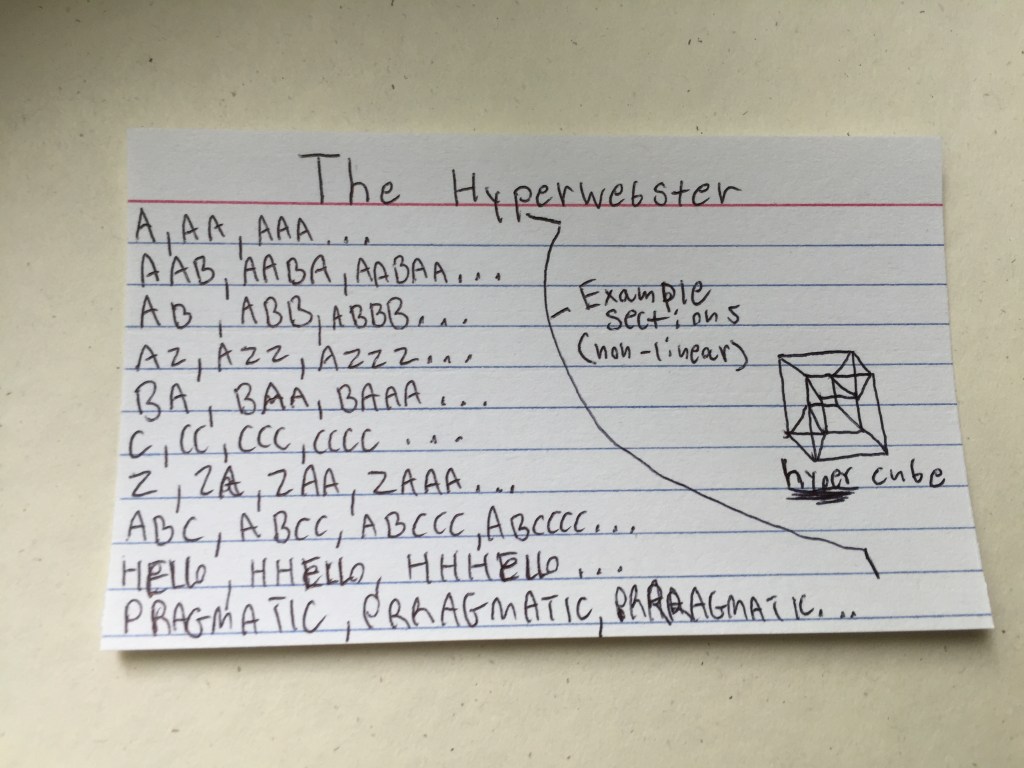 The Hyperwebster
A, AA, AAA...
AAB, AABA, AABAA...
AB, ABB, ABBB...
Example
sections
(non-linear)
AZ, AZZ, AZZZ...
BA, BAA, BAAA...
C, CC, CCC, CCCC ...
Z, ZA, ZAA, ZAAA...
hyper cube
ABC, ABCC, ABCCC, ABCCCC...
HELLO, HHELLO, HHHELLO...
PRAGMATIC, PRRAGMATIC, PRRRAGMATIC...